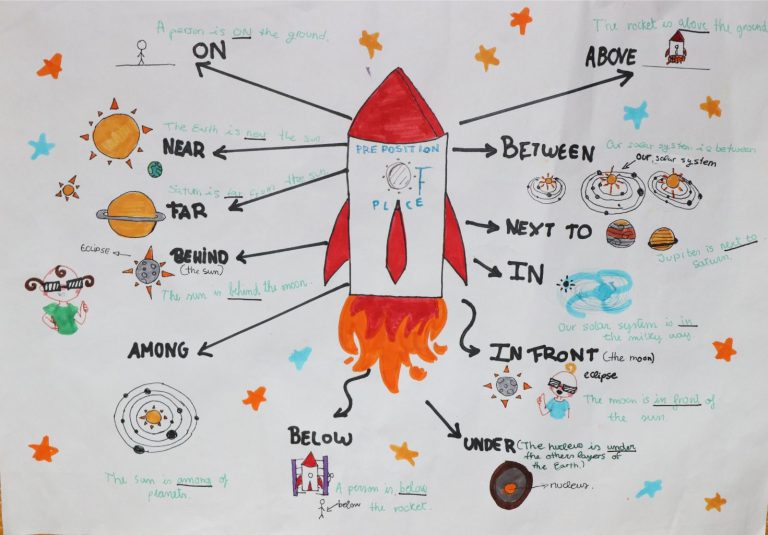 A person is ON the ground.
ON
The rocket is above the ground
ABOVE
The Earth is near the sun.
NEAR
PREPOSITION
OF
PLACE
BETWEEN
Our solar system is between
our solar system
Saturn is far from the sun
FAR
NEXT TO
Jupiter is next to
Saturn.
ECLIPSE
BEHIND
(the sun)
The sun is behind the moon.
IN
Our solar system is in
the milky way
AMONG
IN FRONT (the moon)
eclipse
The moon is in front of
the sun.
The sun is among of
planets.
BELOW
A person is below
the rocket.
below
UNDER (The nucleus is under
the others layers of
the Earth.)
nucleus.